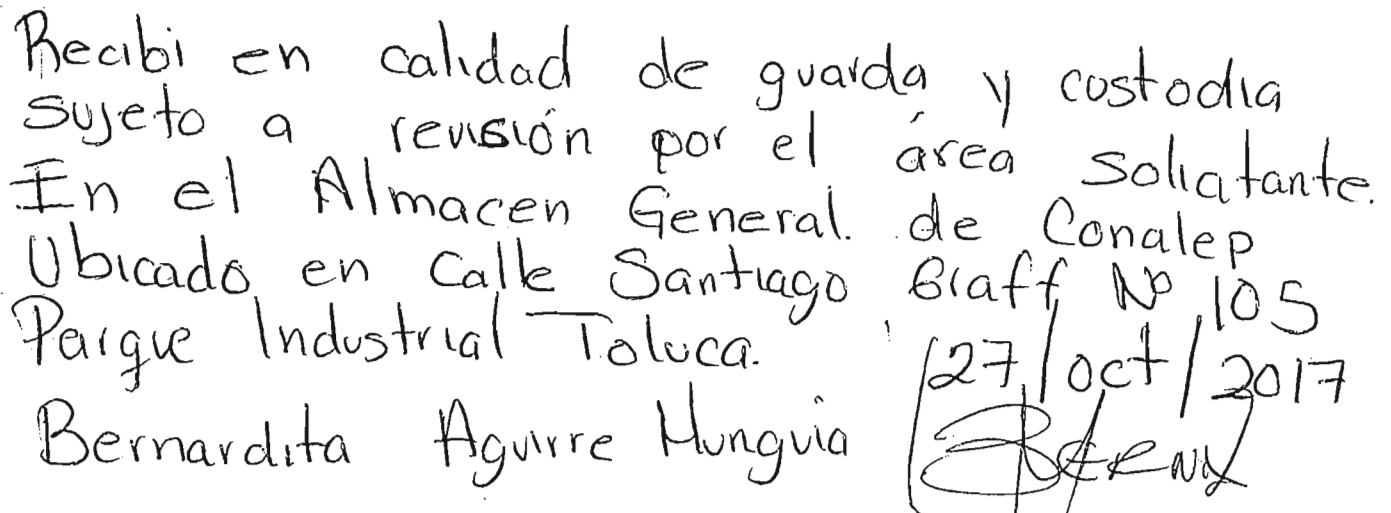 Recibi en calidad de guarda y custodia
sujeto a revisión por el área solicitante.
In el Almacen General. de Conalep
Ubicado en Calle Santiago Graff Nº 105
Parque Industrial Toluca.
27/oct/2017
Bernardita Aguirre Munguia